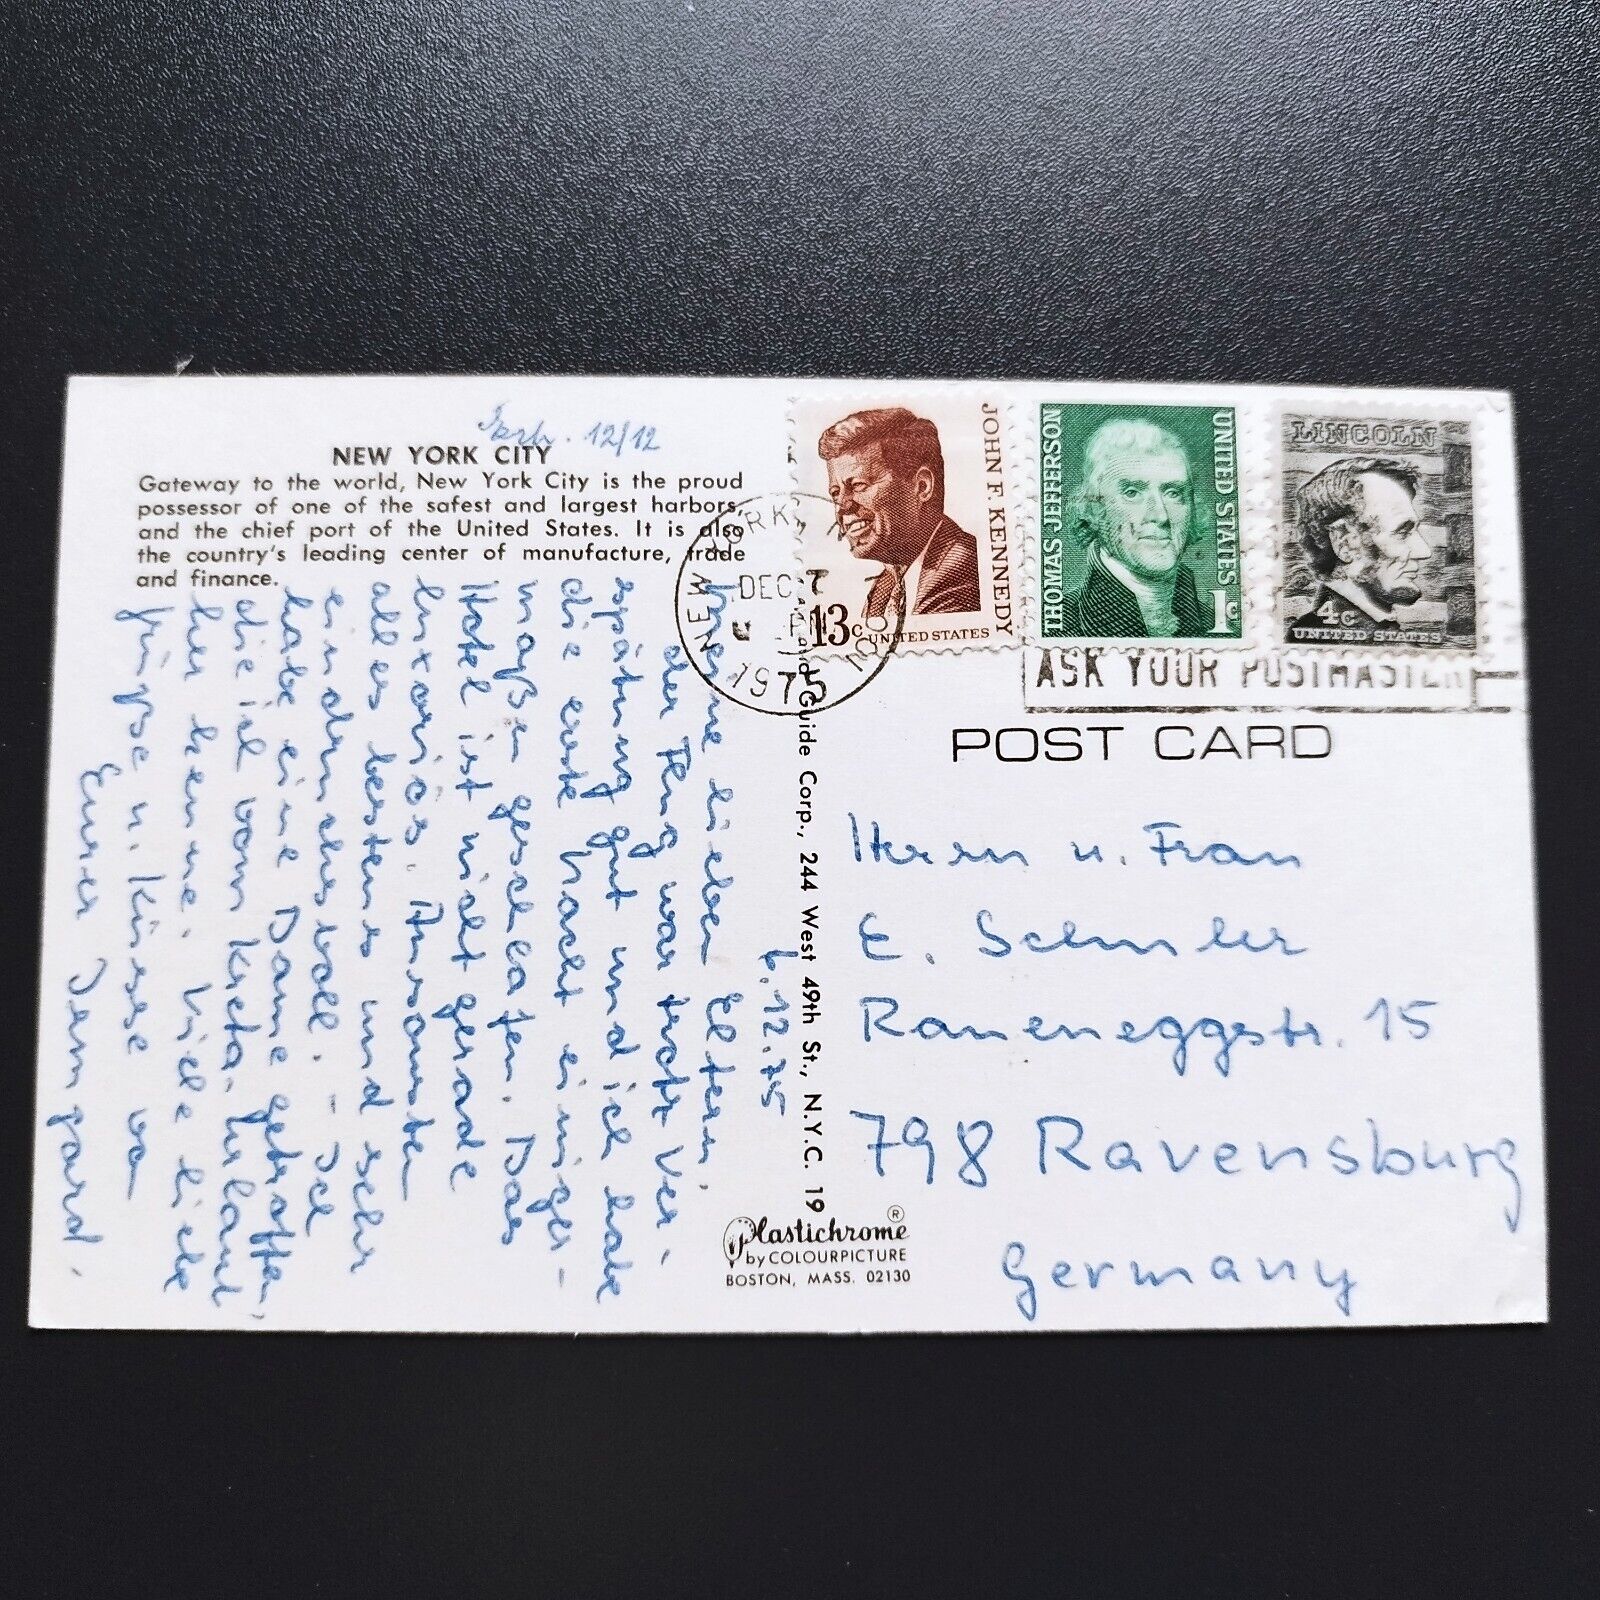 12/12
NEW YORK CITY
Gateway to the world, New York City is the proud
possessor of one of the safest and largest harbors,
and the chief port of the United States. It is also
the country's leading center of manufacture, trade
and finance.
6.12.75
Meine lieben Eltern.
der Flug war trotz Ver-
spätung gut und ich habe
die erste Nacht einiger-
maßen geschlafen. Das
Hotel ist nicht gerade
luxoriös. Ansonsten
alles bestens und sehr
eindrucksvoll. – Ich
habe eine Dame getroffen,
die ich vom Kreta-Urlaub
her kenne. Viele liebe
Grüße u. Küsse von
Eurer Irmgard.
JOHN F. KENNEDY
13c UNITED STATES
THOMAS JEFFERSON
UNITED STATES 1c
LINCOLN
4c
UNITED STATES
NEW YORK, N.Y.
DEC 7
1975
ASK YOUR POSTMASTER
POST CARD
Herrn u. Frau
E. Schuler
Raueneggstr. 15
798 Ravensburg
Germany
Guide Corp., 244 West 49th St., N.Y.C. 19
Plastichrome ®
by COLOURPICTURE
BOSTON, MASS. 02130